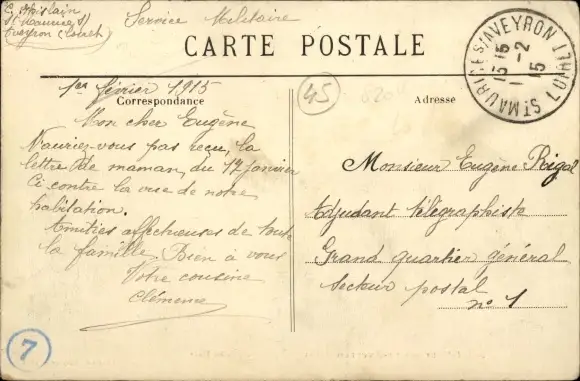 C. Ghislain
St Maurice s/
Aveyron (Loiret)
Service Militaire
CARTE POSTALE
ST MAURICE S/AVEYRON
LOIRET
15 15
1 - 2
15
1er février 1915
45
Correspondance
Adresse
Mon cher Eugène
N'auriez-vous pas reçu, la
lettre de maman, du 17 janvier
Ci contre la vue de notre
habitation.
Amitiés affectueuses de toute
la famille. Bien à vous
Votre cousine
Clémence
Monsieur Eugène Rigal
Adjudant télégraphiste
Grand quartier général
Secteur postal
n° 1
7